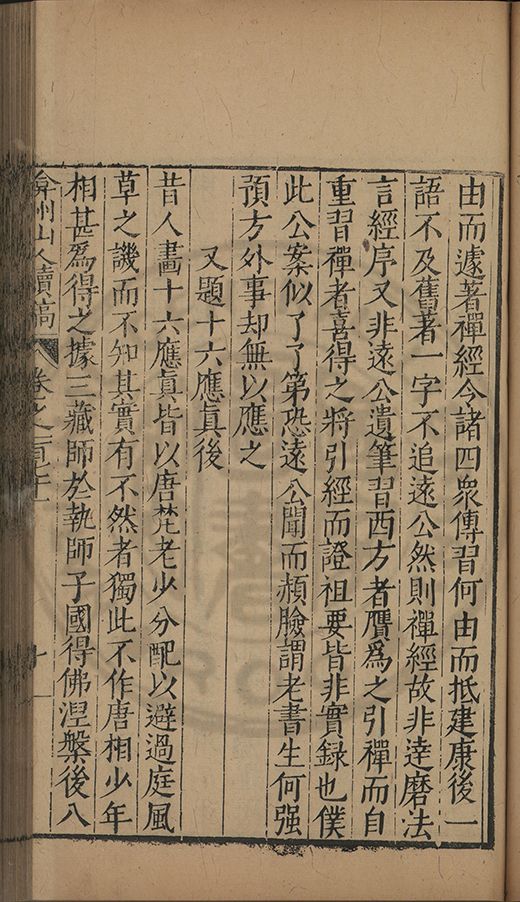 由而遽著禪經今諸四衆傳習何由而抵建康後一
語不及舊著一字不追遠公然則禪經故非達磨法
言經序又非遠公遺筆習西方者贋爲之引禪而自
重習禪者喜得之將引經而證祖要皆非實録也僕
此公案似了了第恐遠公聞而頳臉謂老書生何强
預方外事却無以應之
又題十六應眞後
昔人畫十六應眞皆以唐梵老少分配以避過庭風
草之譏而不知其實有不然者獨此不作唐相少年
相甚爲得之據三藏師於執師子國得佛湼槃後八
弇州山人續稿 卷之一百